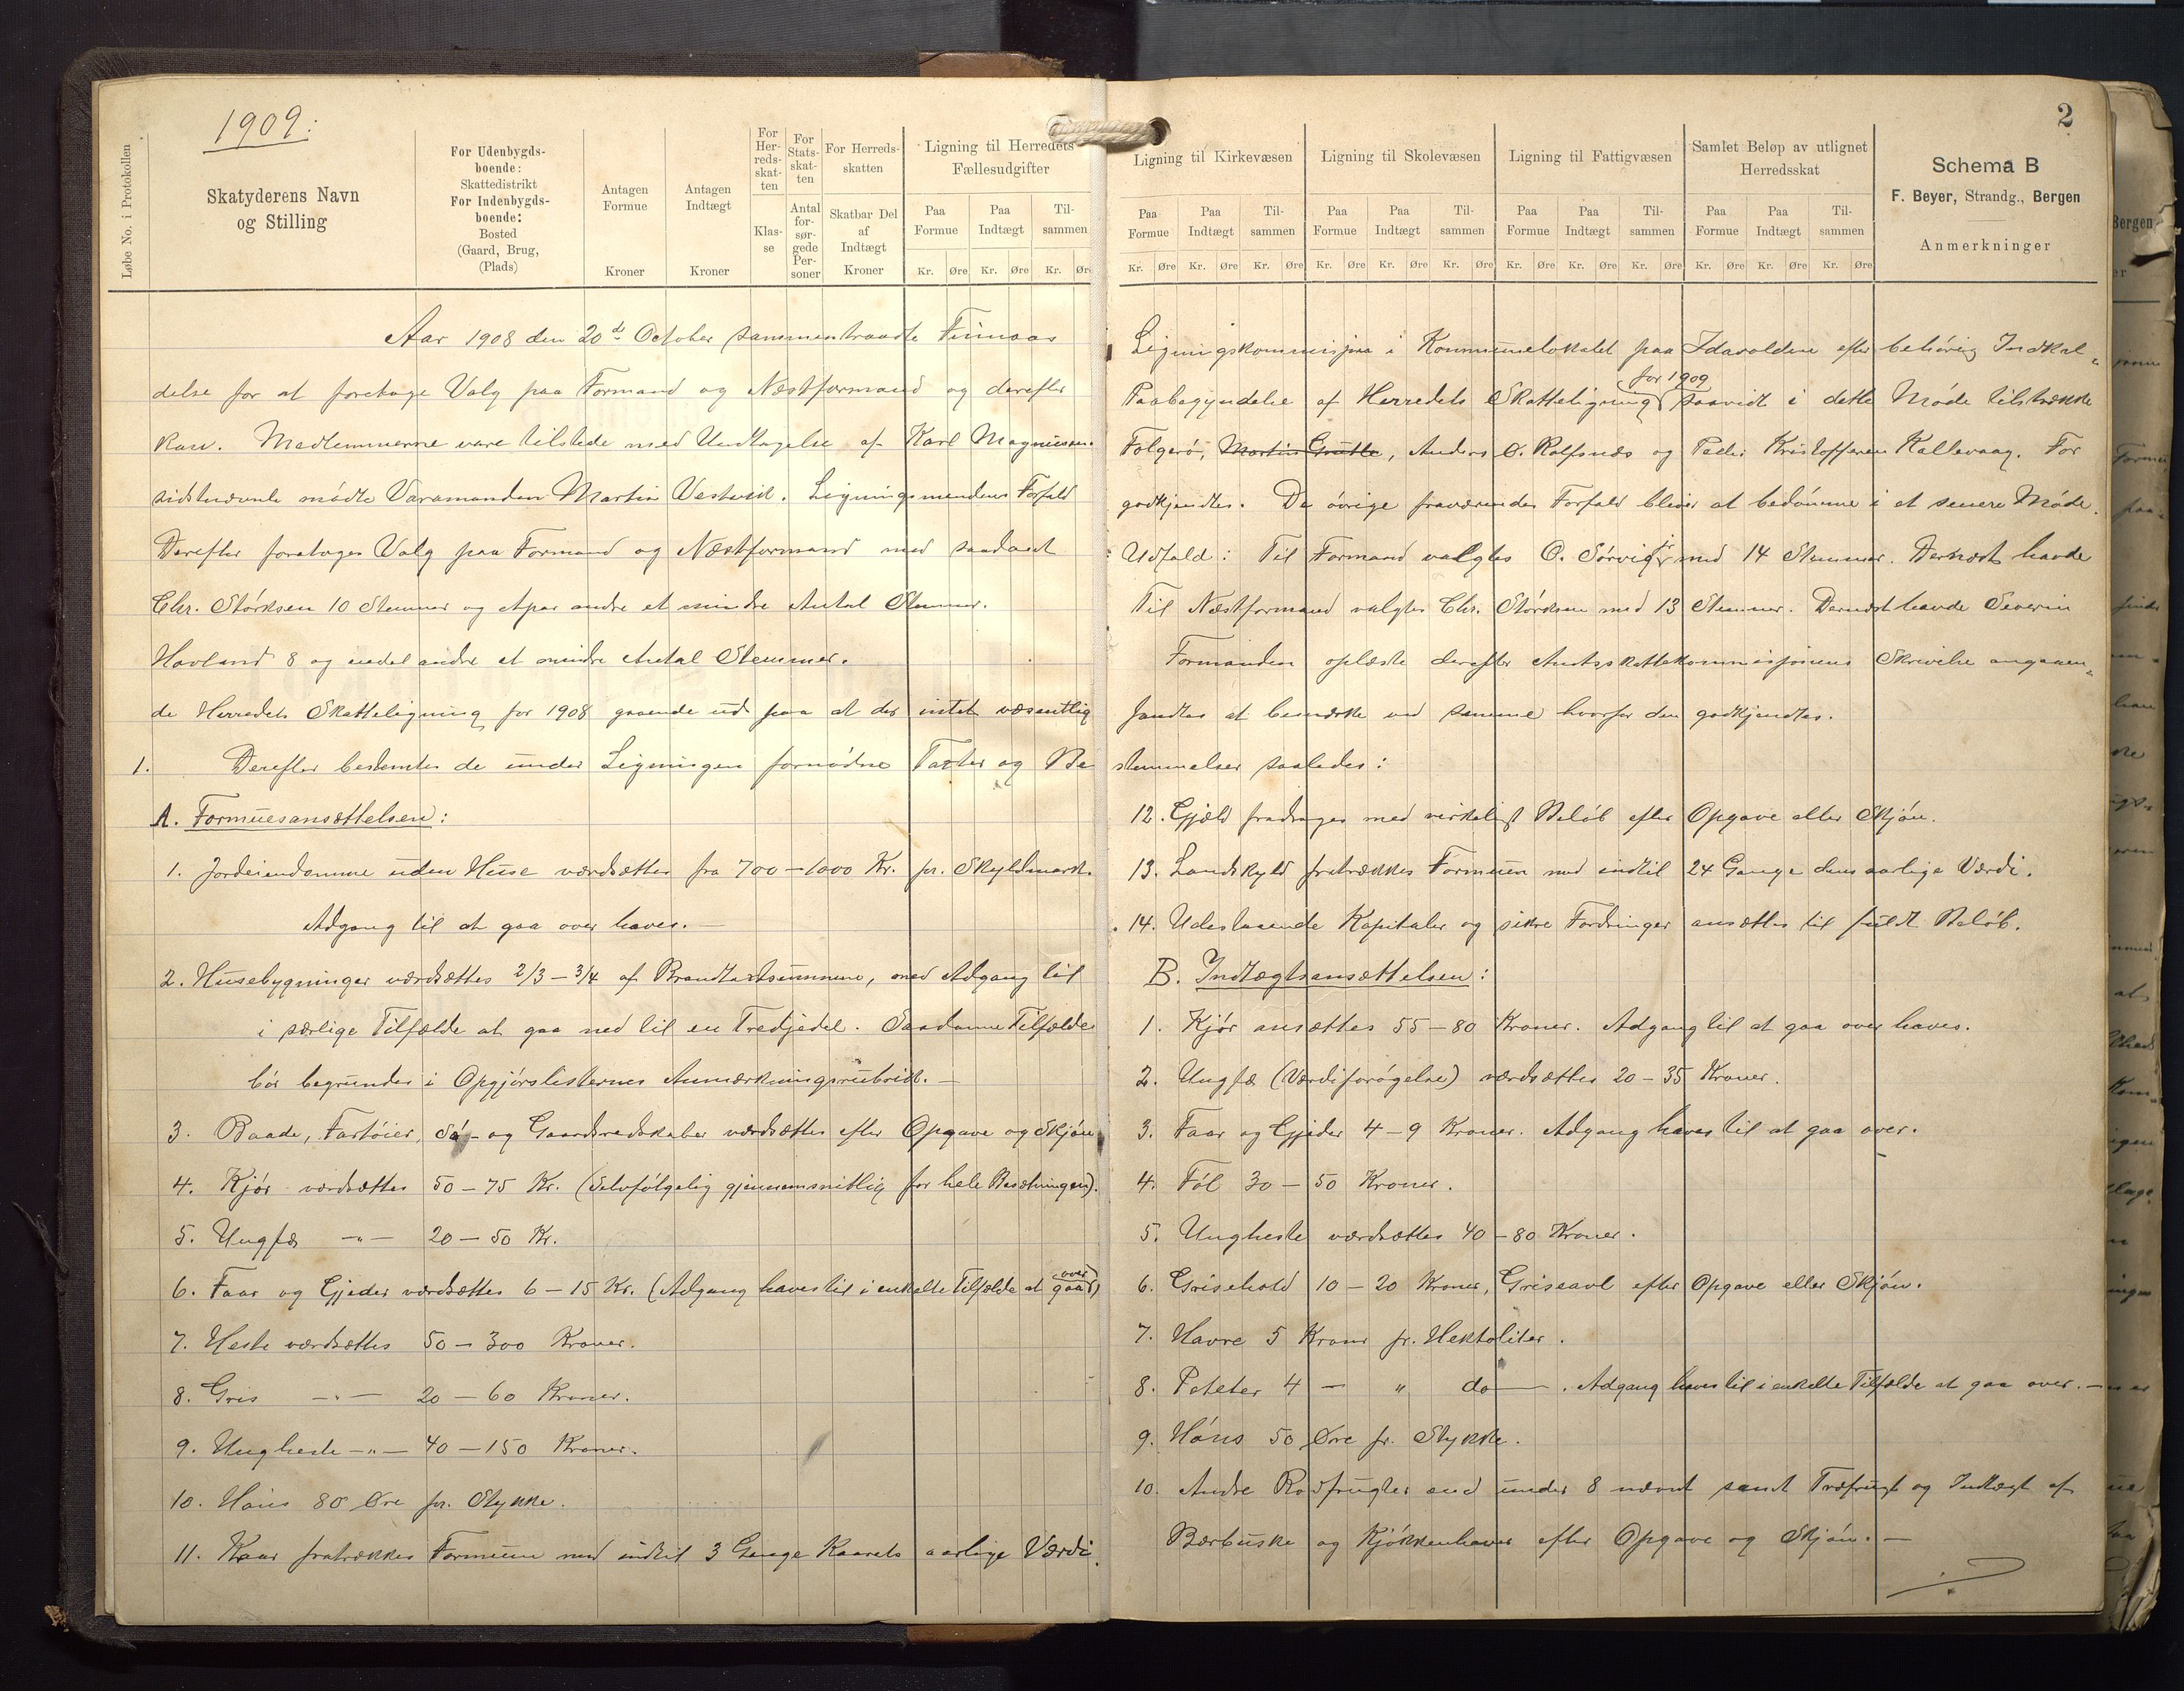 1909:
2
Løbe No. i Protokollen
Skatyderens Navn
og Stilling
For Udenbygds-
boende:
Skattedistrikt
For Indenbygds-
boende:
Bosted
(Gaard, Brug,
(Plads)
Antagen
Formue
Kroner
Antagen
Indtægt
Kroner
For
Her-
reds-
skat-
ten
Klas-
se
For
Stats-
skat-
ten
Antal
for-
sør-
gede
Per-
soner
For Herreds-
skatten
Skatbar Del
af
Indtægt
Kroner
Ligning til Herredets
Fællesudgifter
Paa Formue Paa Indtægt Til-sammen
Kr. Øre Kr. Øre Kr. Øre
Ligning til Kirkevæsen
Paa Formue Paa Indtægt Til-sammen
Kr. Øre Kr. Øre Kr. Øre
Ligning til Skolevæsen
Paa Formue Paa Indtægt Til-sammen
Kr. Øre Kr. Øre Kr. Øre
Ligning til Fattigvæsen
Paa Formue Paa Indtægt Til-sammen
Kr. Øre Kr. Øre Kr. Øre
Samlet Beløp av utlignet
Herredsskat
Paa Formue Paa Indtægt Til-sammen
Kr. Øre Kr. Øre Kr. Øre
Schema B
F. Beyer, Strandg., Bergen
Anmerkninger
Aar 1908 den 20de October sammentraadte Finnaas Ligningskommisjon i Kommunelokalet paa Idavolden efter behørig Indkal-
delse for at foretage Valg paa Formand og Næstformand og derefter Paabegyndelse af Herredets Skatteligning for 1909 saavidt i dette Møde tilstrække
kan. Medlemmerne vare tilstede med Undtagelse af Karl Magnussen Folgerø, Martin Grutle, Anders O. Rolfsnæs og Peder Kristoffersen Kallevaag. For
sidstnævnte mødte Varamanden Martin Vestvik. Ligningsmendenes Forfald godkjendtes. De øvrige fraværendes Forfald bliver at bedømme i et senere Møde.
Derefter foretoges Valg paa Formand og Næstformand med saadant Udfald: Til Formand valgtes O. Sørvig jr med 14 Stemmer. Dernæst havde
Chr. Størksen 10 Stemmer og et par andre et mindre Antal Stemmer. Til Næstformand valgtes Chr. Størksen med 13 Stemmer. Dernæst havde Severin
Hovland 8 og endel andre et mindre Antal Stemmer. Formanden oplæste derefter Amtsskattekommisjonens Skrivelse angaaen-
de Herredets Skatteligning for 1908 gaaende ud paa at der intet væsentlig fandtes at bemærke ved samme hvorfor den godkjendtes.
1. Derefter bestemtes de under Ligningen fornødne Taxter og Be stemmelser saaledes:
A. Formuesansættelsen:
1. Jordeiendomme uden Huse værdsættes fra 700 – 1000 Kr. pr. Skyldmark.
Adgang til at gaa over haves. –
2. Husebygninger værdsættes 2/3 – 3/4 af Brandtaxtsummene, med Adgang til
i særlige Tilfælde at gaa ned til en Tredjedel. Saadanne Tilfælde
bør begrundes i Opgjørslisternes Anmærkningsrubrik. –
3. Baade, Fartøier, Sø- og Gaardsredskaber værdsættes efter Opgave og Skjøn
4. Kjør værdsættes 50 – 75 Kr. (Selvfølgelig gjennemsnitlig for hele Besætningen).
5. Ungfæ –"– 20 – 50 Kr.
6. Faar og Gjeder værdsættes 6 – 15 Kr. (Adgang haves til i enkelte Tilfælde at gaa over)
7. Heste værdsættes 50 – 300 Kroner.
8. Gris –"– 20 – 60 Kroner.
9. Ungheste –"– 40 – 150 Kroner.
10. Høns 80 Øre pr. Stykke.
11. Kaar fratrækkes Formuen med indtil 3 Gange Kaarets aarlige Værdi.
12. Gjæld fradrages med virkeligt Beløb efter Opgave eller Skjøn.
13. Landskyld fratrækkes Formuen med indtil 24 Gange dens aarlige Værdi.
14. Udestaaende Kapitaler og sikre Fordringer ansættes til fuldt Beløb.
B. Indtægtsansættelsen:
1. Kjør ansættes 55 – 80 Kroner. Adgang til at gaa over haves.
2. Ungfæ (Værdiforøgelse) værdsættes 20 – 35 Kroner.
3. Faar og Gjeder 4 – 9 Kroner. Adgang haves til at gaa over.
4. Føl 30 – 50 Kroner.
5. Ungheste værdsættes 40 – 80 Kroner.
6. Grisehold 10 – 20 Kroner, Griseavl efter Opgave eller Skjøn.
7. Havre 5 Kroner pr. Hektoliter.
8. Poteter 4 – " do – . Adgang haves til i enkelte Tilfælde at gaa over. –
9. Høns 50 Øre pr. Stykke.
10. Andre Rodfrugter end under 8 nævnt samt Træfrugt og Indtægt af
Bærbuske og Kjøkkenhaver efter Opgave og Skjøn. –